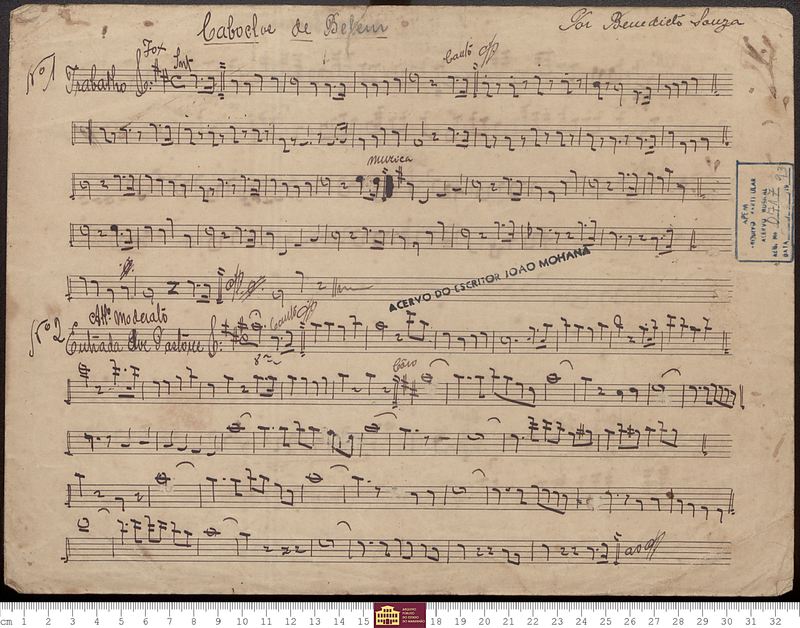 Caboclos de Belem
Por Benedicto Souza
Nº 1
Fox
Trabalho
Canto
Musica
ACERVO DO ESCRITOR JOÃO MOHANA
APEM
ACERVO MUSICAL
DATA
Nº 2
Allº moderato
Entrada das Pastoras
Canto
Côro
ao
cm 1 2 3 4 5 6 7 8 9 10 11 12 13 14 15 18 19 20 21 22 23 24 25 26 27 28 29 30 31 32
ARQUIVO PÚBLICO DO ESTADO DO MARANHÃO